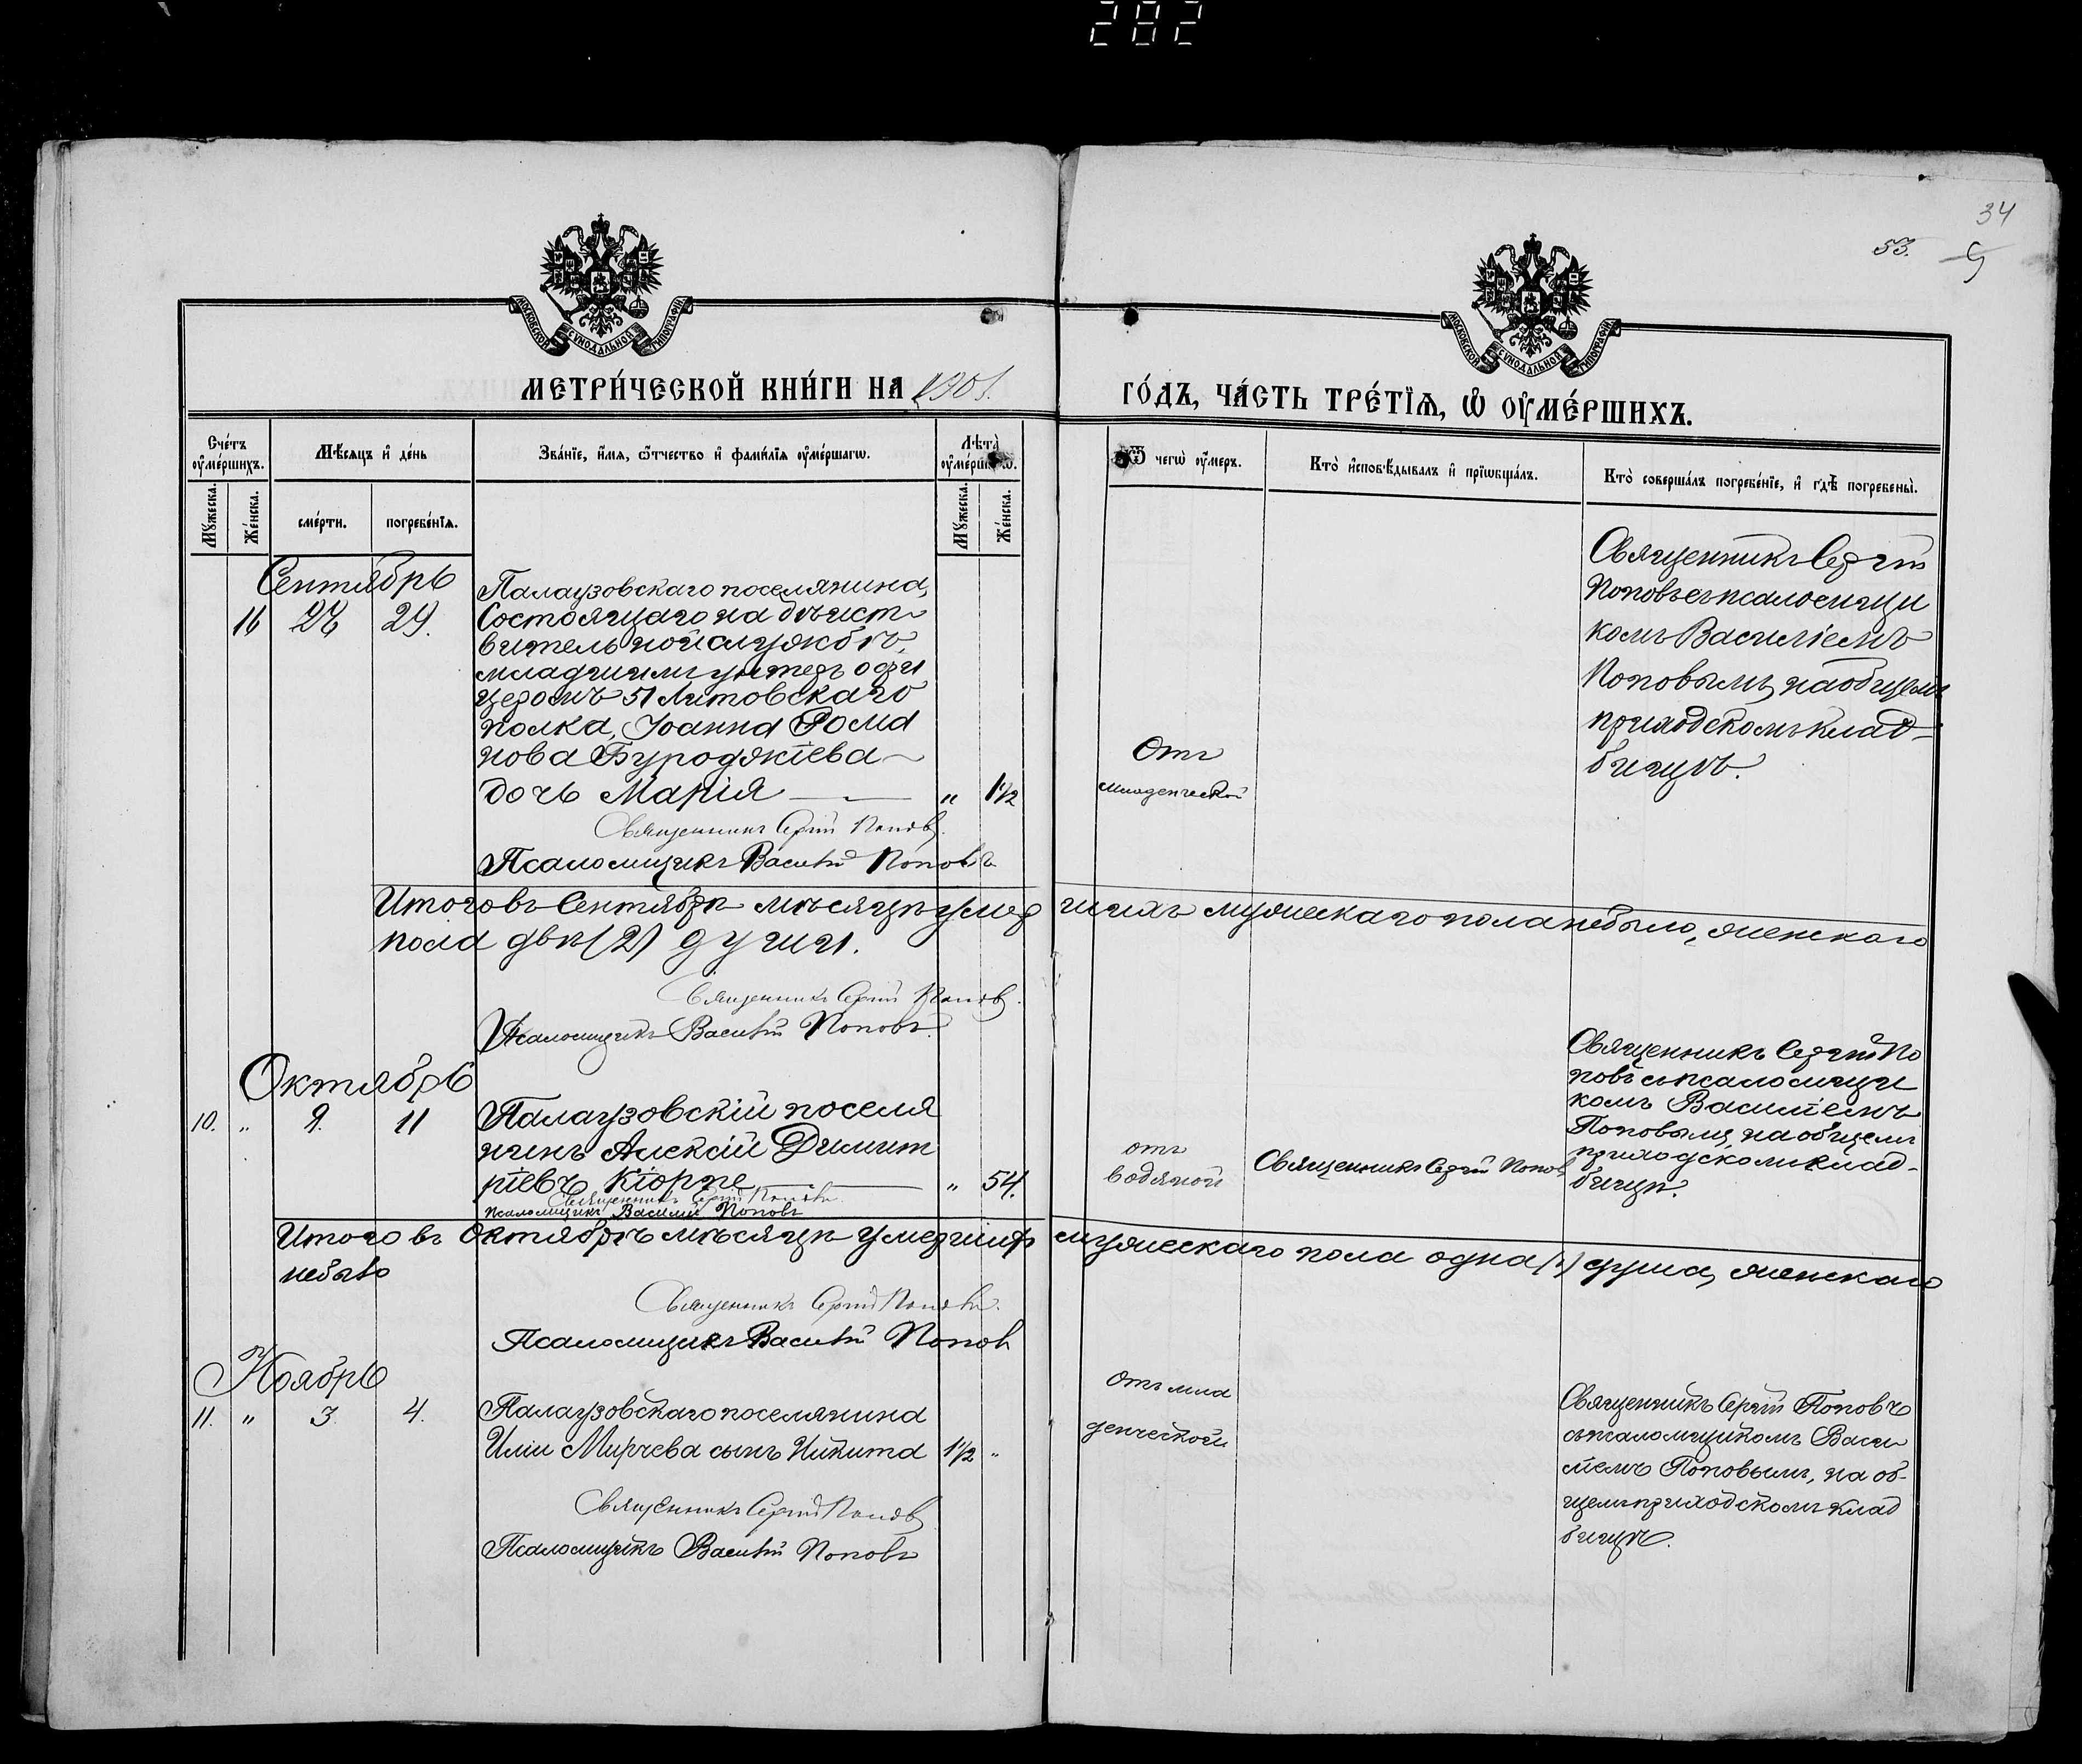 282
34
53.
МОСКОВСКОЙ СѴНОДАЛЬНОЙ ТИПОГРАФІИ
МОСКОВСКОЙ СѴНОДАЛЬНОЙ ТИПОГРАФІИ
МЕТРИ́ЧЕСКОЙ КНИ́ГИ НА 1901.
ГО́ДЪ, ЧА́СТЬ ТРЕ́ТЇѦ, Ѡ҆ ОУ҆МЕ́РШИХЪ.
Сче́тъ оу҆ме́ршихъ.
Мѣ́сѧцъ и҆ де́нь
Зва́нїе, и҆́мѧ, ѻ҆́тчество и҆ фами́лїѧ оу҆ме́ршагѡ.
Лѣ́та оу҆ме́ршагѡ.
Ѿ чегѡ̀ оу҆́меръ.
Кто̀ и҆сповѣ́дывалъ и҆ прїѡбща́лъ.
Кто̀ соверша́лъ погребе́нїе, и҆ гдѣ̀ погребены̀.
Мꙋ́жеска.
Же́нска.
сме́рти.
погребе́нїѧ.
Мꙋ́жеска.
Же́нска.
Сентябрь
16 27 29.
Палаузовскаго поселянина,
Состоящаго на дѣйст-
вительной службѣ,
младшимъ унтеръ офи
церомъ 51 Литовскаго
полка, Іоанна Рома
нова Буроджіева
дочь Марія " 1½
Священникъ Сергій Поповъ.
Псаломщикъ Василій Поповъ
Отъ
младенческой
Священникъ Сергій
Поповъ съ псаломщи
комъ Василіемъ
Поповымъ, на общемъ
приходскомъ клад-
бищѣ.
Итого въ Сентябрѣ мѣсяцѣ умер шихъ мужескаго пола небыло, женскаго
пола двѣ (2) души.
Священникъ Сергій Поповъ.
Псаломщикъ Василій Поповъ.
Октябрь
10. " 9. 11
Палаузовскій поселя
нинъ Алексій Димит
ріевъ Кіорпе " 54.
Священникъ Сергій Поповъ.
Псаломщикъ Василій Поповъ
отъ
водяной
Священникъ Сергій Попов
Священникъ Сергій По
повъ съ псаломщи
комъ Василіемъ
Поповымъ, на общемъ
приходскомъ клад-
бищѣ.
Итого въ Октябрѣ мѣсяцѣ умершихъ мужескаго пола одна (1) душа, женскаго
небыло
Священникъ Сергій Поповъ.
Псаломщикъ Василій Попов
Ноябрь
11. " 3. 4.
Палаузовскаго поселянина
Иліи Мирчева сынъ Никита 1½ "
Священникъ Сергій Поповъ
Псаломщикъ Василій Поповъ
Отъ мла
денческой
Священникъ Сергій Поповъ
съ псаломщикомъ Васи
ліемъ Поповымъ, на об-
щемъ приходскомъ клад
бищѣ.